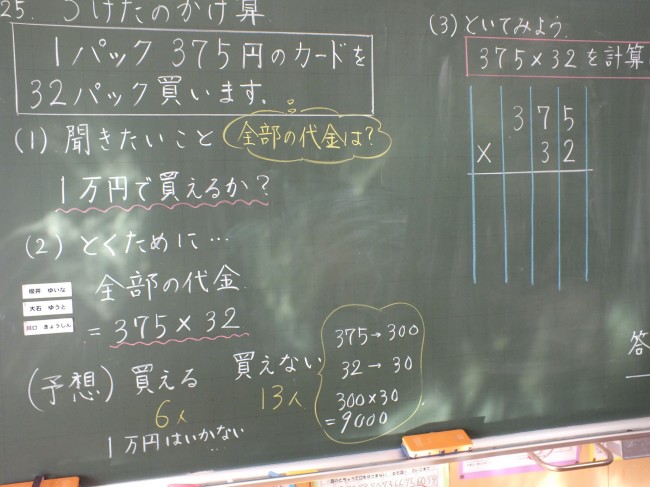 25. うけたのかけ算
1パック 375円のカードを
32パック買います.
(1) 聞きたいこと
全部の代金は?
1万円で買えるか?
(2) とくために…
櫻井 ゆいな
大石 ゆうと
川口 きょうしん
全部の代金
= 375×32
(予想) 買える 買えない
6人 13人
1万円はいかない
375→300
32→30
300×30
=9000
(3) といてみよう.
375×32を計算
375
×32
答